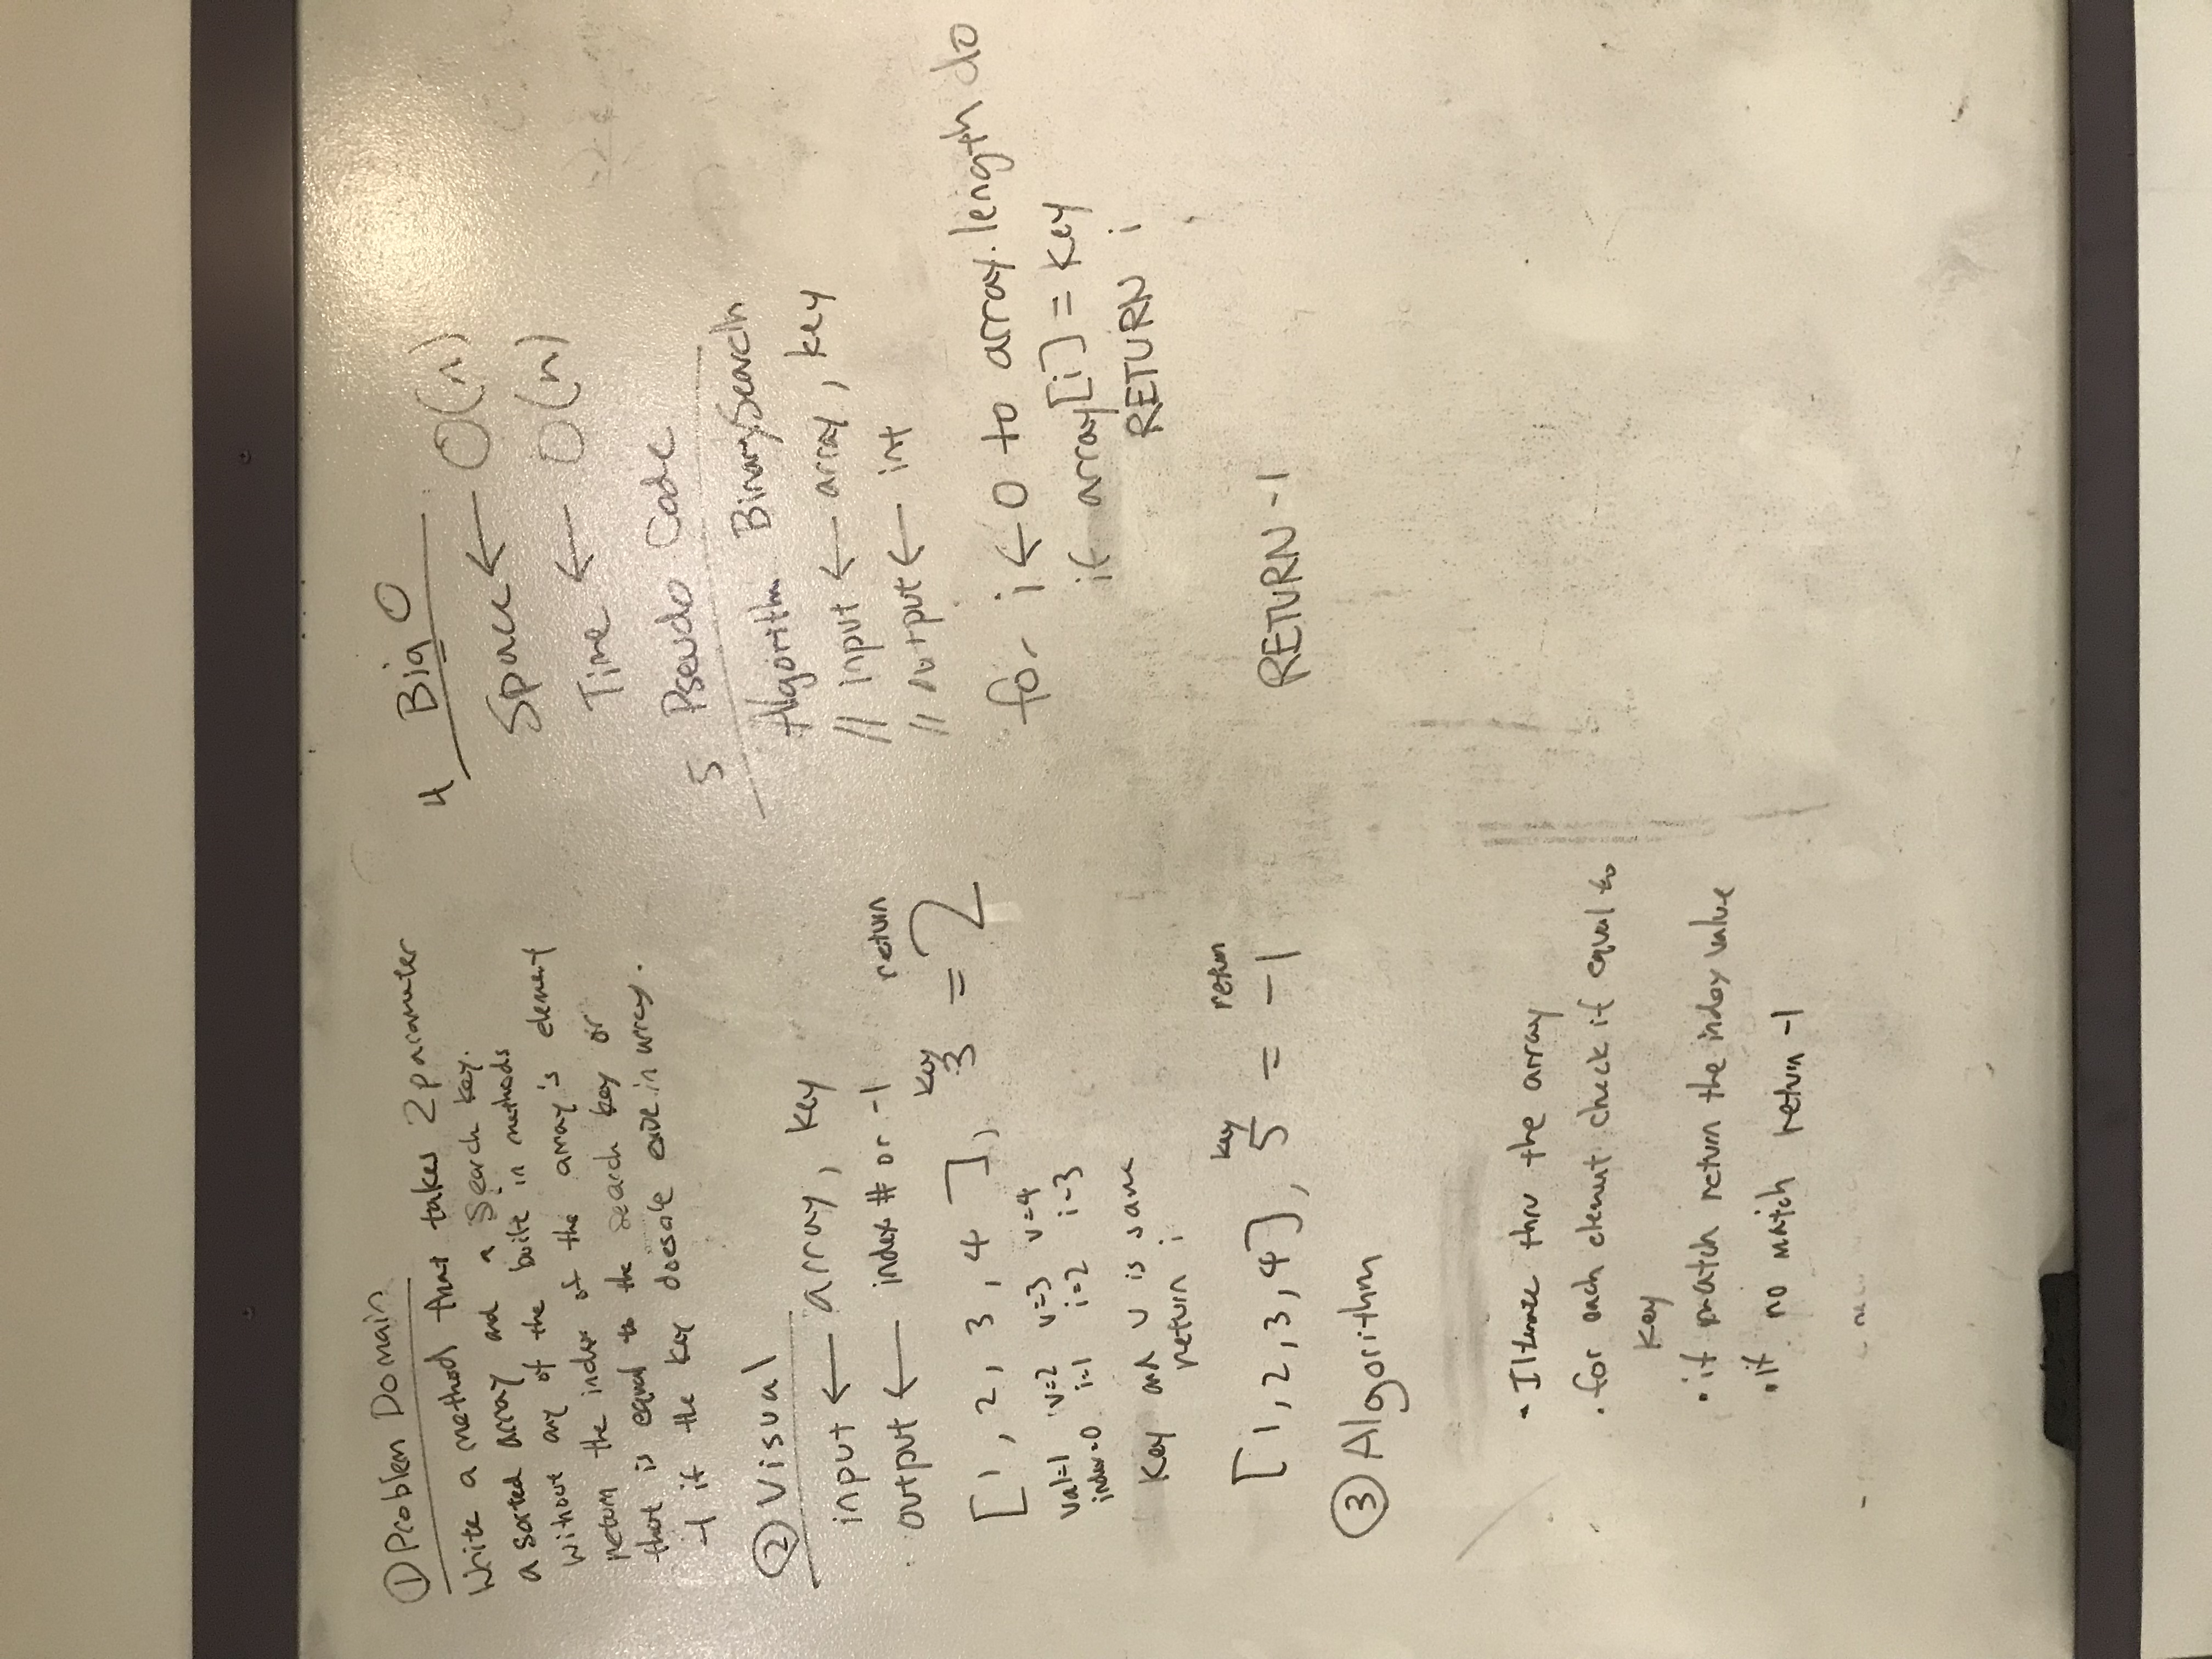 ① Problem Domain
Write a method that takes 2 parameter
a sorted array and a search key.
Without any of the built in methods
return the index of the array's element
that is equal to the search key or
-1 if the key doesn't exist in array.
② Visual
input ← array, key
output ← index # or -1
key return
[1, 2, 3, 4], 3 = 2
val=1 v=2 v=3 v=4
index=0 i=1 i=2 i=3
Key and v is same
return i
key return
[1,2,3,4], 5 = -1
③ Algorithm
• Itterate thru the array
• for each element check if equal to
key
• if match return the index value
• if no match return -1
4 Big O
Space ← O(n)
Time ← O(n)
5 Pseudo Code
Algorithm BinarySearch
// input ← array, key
// output ← int
for i ← 0 to array.length do
if array[i] = key
RETURN i
RETURN -1